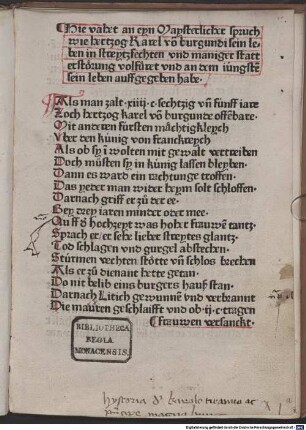 Hie vahet an eyn Maysterlicher spruch
wie hertzog Karel vō burgundi sein le-
ben in streytzechten vnd maniger statt
erstörung volfüret vnd an dem iüngstē
sein leben auffgegeben habe.
Als man zalt .xiiij.c.sechtzig vn̄ fünff iare
Zoch hertzog karel vō burgunde offēbare
Mit anderen fürsten mächtigkleych
Vber den künig von franckreych
Als ob sy in wolten mit gewalt vertreiben
Doch müsten sy in künig lassen bleyben
Wann es ward ein rachtunge troffen
Das yeder man wider heym solt schloffen
Darnach griff er zů der ee
Bey drey iaren minder oder mee
Auff d' hochzeyt was hoher frauwen tantz
Sprach er er sehe lieber streytes glantz
Tod schlagen vnd gurgel abstechen
Stürmen vechten stötte vn̄ schlos brechen
Als er zů dienant hette getan
Do nit belib eins burgers hauß stan
Darnach Litich gewunnē vnd verbrannt
Die mauren geschlaifft vnd ob .ij.c. tragen
frauwen versanckt
BIBLIOTHECA
REGIA
MONACENSIS.
Hystoria d' karolo